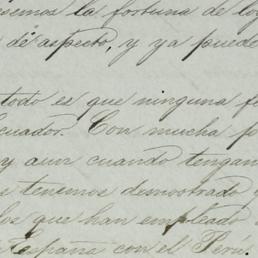 semos la fortuna de lo
de aspecto, y ya puede
todo es que ninguna f
cuador. Con mucha fo
y aun cuando tengan
tenemos demostrado
los que han empleado
España con el Perú.